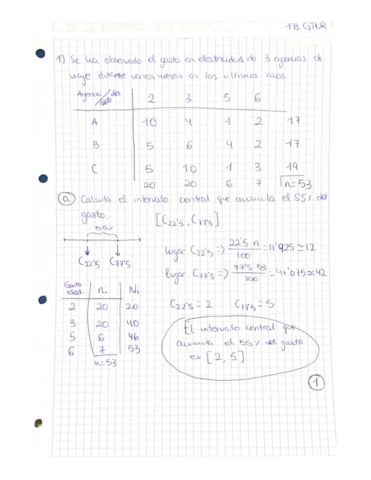 1B GTUR
1) Se ha observado el gasto en electricidad de 3 agencias de
viaje durante varios meses en los ultimos años.
Agencia / gasto 2 3 5 6
A 10 4 1 2 17
B 5 6 4 2 17
C 5 10 1 3 19
20 20 6 7 n=53
a) Calcula el intervalo central que acumula el 55% del
gasto. [C22'5, C77'5]
55%
C22'5 C77'5
lugar C22'5 => 22'5·n / 100 = 11'925 ≃ 12
lugar C77'5 => 77'5·53 / 100 = 41'075 ≃ 42
Gasto nᵢ Nᵢ
2 20 20
3 20 40
5 6 46
6 7 53
n=53
C22'5 = 2 C77'5 = 5
El intervalo central que
acumula el 55% del gasto
es [2, 5]
1